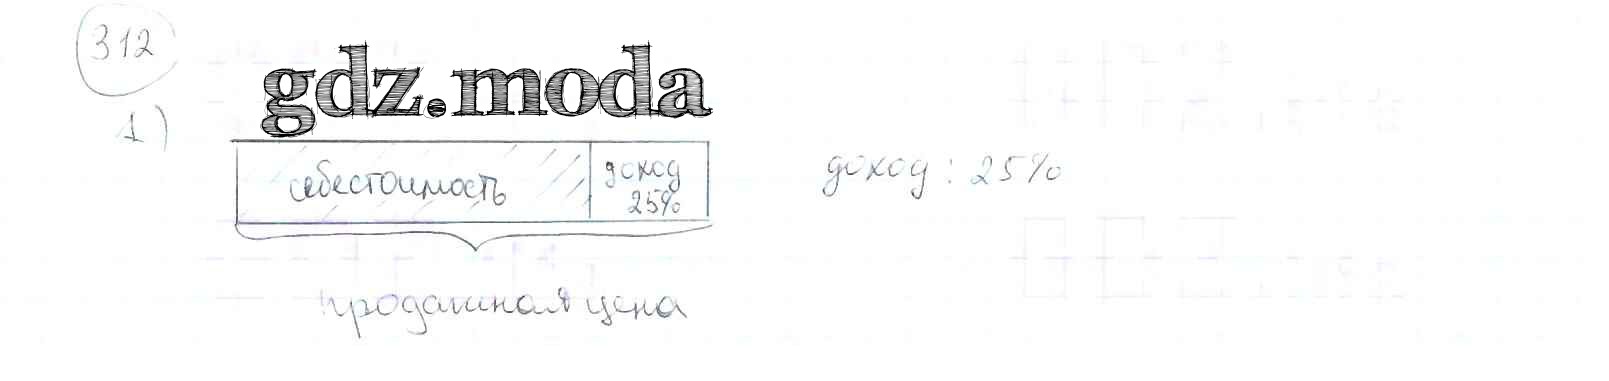 312
gdz.moda
1)
себестоимость
доход
25%
доход : 25%
продажная цена